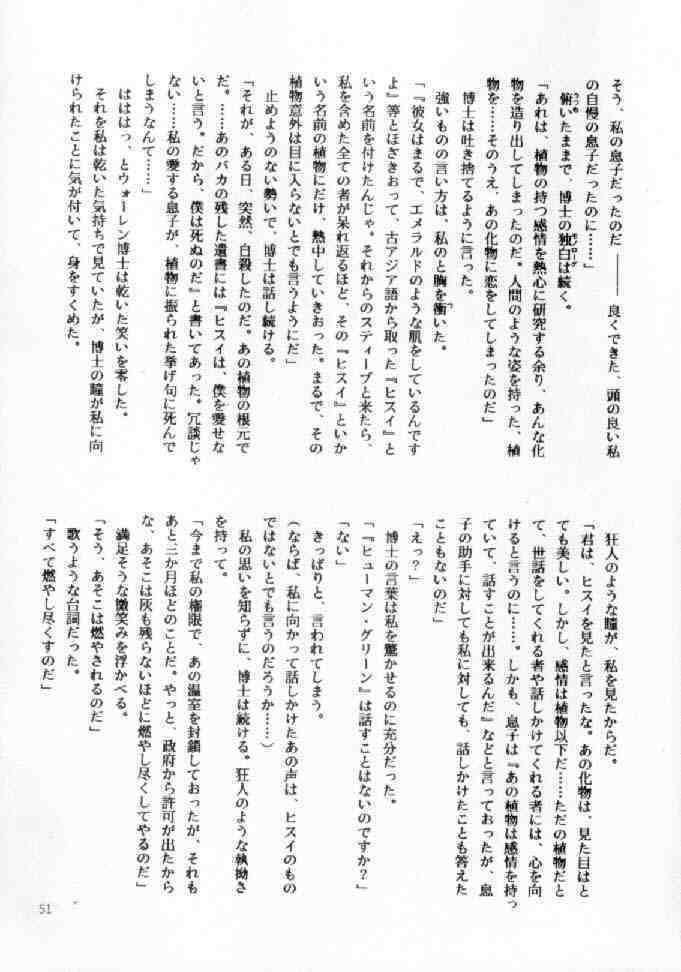 そう、私の息子だったのだ ―――― 良くできた、頭の良い私
の自慢の息子だったのに……」
俯いたままで、博士の独白は続く。
「あれは、植物の持つ感情を熱心に研究する余り、あんな化
物を造り出してしまったのだ。人間のような姿を持った、植
物を……そのうえ、あの化物に恋をしてしまったのだ」
博士は吐き捨てるように言った。
強いものの言い方は、私のと胸を衝いた。
「『彼女はまるで、エメラルドのような肌をしているんです
よ』等とほさきおって、古アジア語から取った『ヒスイ』と
いう名前を付けたんじゃ。それからのスティーブと来たら、
私を含めた全ての者が呆れ返るほど、その『ヒスイ』といか
いう名前の植物にだけ、熱中していきおった。まるで、その
植物意外は目に入らないとでも言うようにだ」
止めようのない勢いで、博士は話し続ける。
「それが、ある日、突然、自殺したのだ。あの植物の根元で
だ。……あのバカの残した遺書には『ヒスイは、僕を愛せな
いと言う。だから、僕は死ぬのだ』と書いてあった。冗談じゃ
ない……私の愛する息子が、植物に振られた挙げ句に死んで
しまうなんて……」
はははっ、とウォーレン博士は乾いた笑いを零した。
それを私は乾いた気持ちで見ていたが、博士の瞳が私に向
けられたことに気が付いて、身をすくめた。
狂人のような瞳が、私を見たからだ。
「君は、ヒスイを見たと言ったな。あの化物は、見た目はと
ても美しい。しかし、感情は植物以下だ……ただの植物だと
て、世話をしてくれる者や話しかけてくれる者には、心を向
けると言うのに……。しかも、息子は『あの植物は感情を持っ
ていて、話すことが出来るんだ』などと言っておったが、息
子の助手に対しても私に対しても、話しかけたことも答えた
こともないのだ」
「えっ？」
博士の言葉は私を驚かせるのに充分だった。
「『ヒューマン・グリーン』は話すことはないのですか？」
「ない」
きっぱりと、言われてしまう。
（ならば、私に向かって話しかけたあの声は、ヒスイのもの
ではないとでも言うのだろうか……）
私の思いを知らずに、博士は続ける。狂人のような執拗さ
を持って。
「今まで私の権限で、あの温室を封鎖しておったが、それも
あと三か月ほどのことだ。やっと、政府から許可が出たから
な、あそこは灰も残らないほどに燃やし尽くしてやるのだ」
満足そうな微笑みを浮かべる。
「そう、あそこは燃やされるのだ」
歌うような台詞だった。
「すべて燃やし尽くすのだ」
51